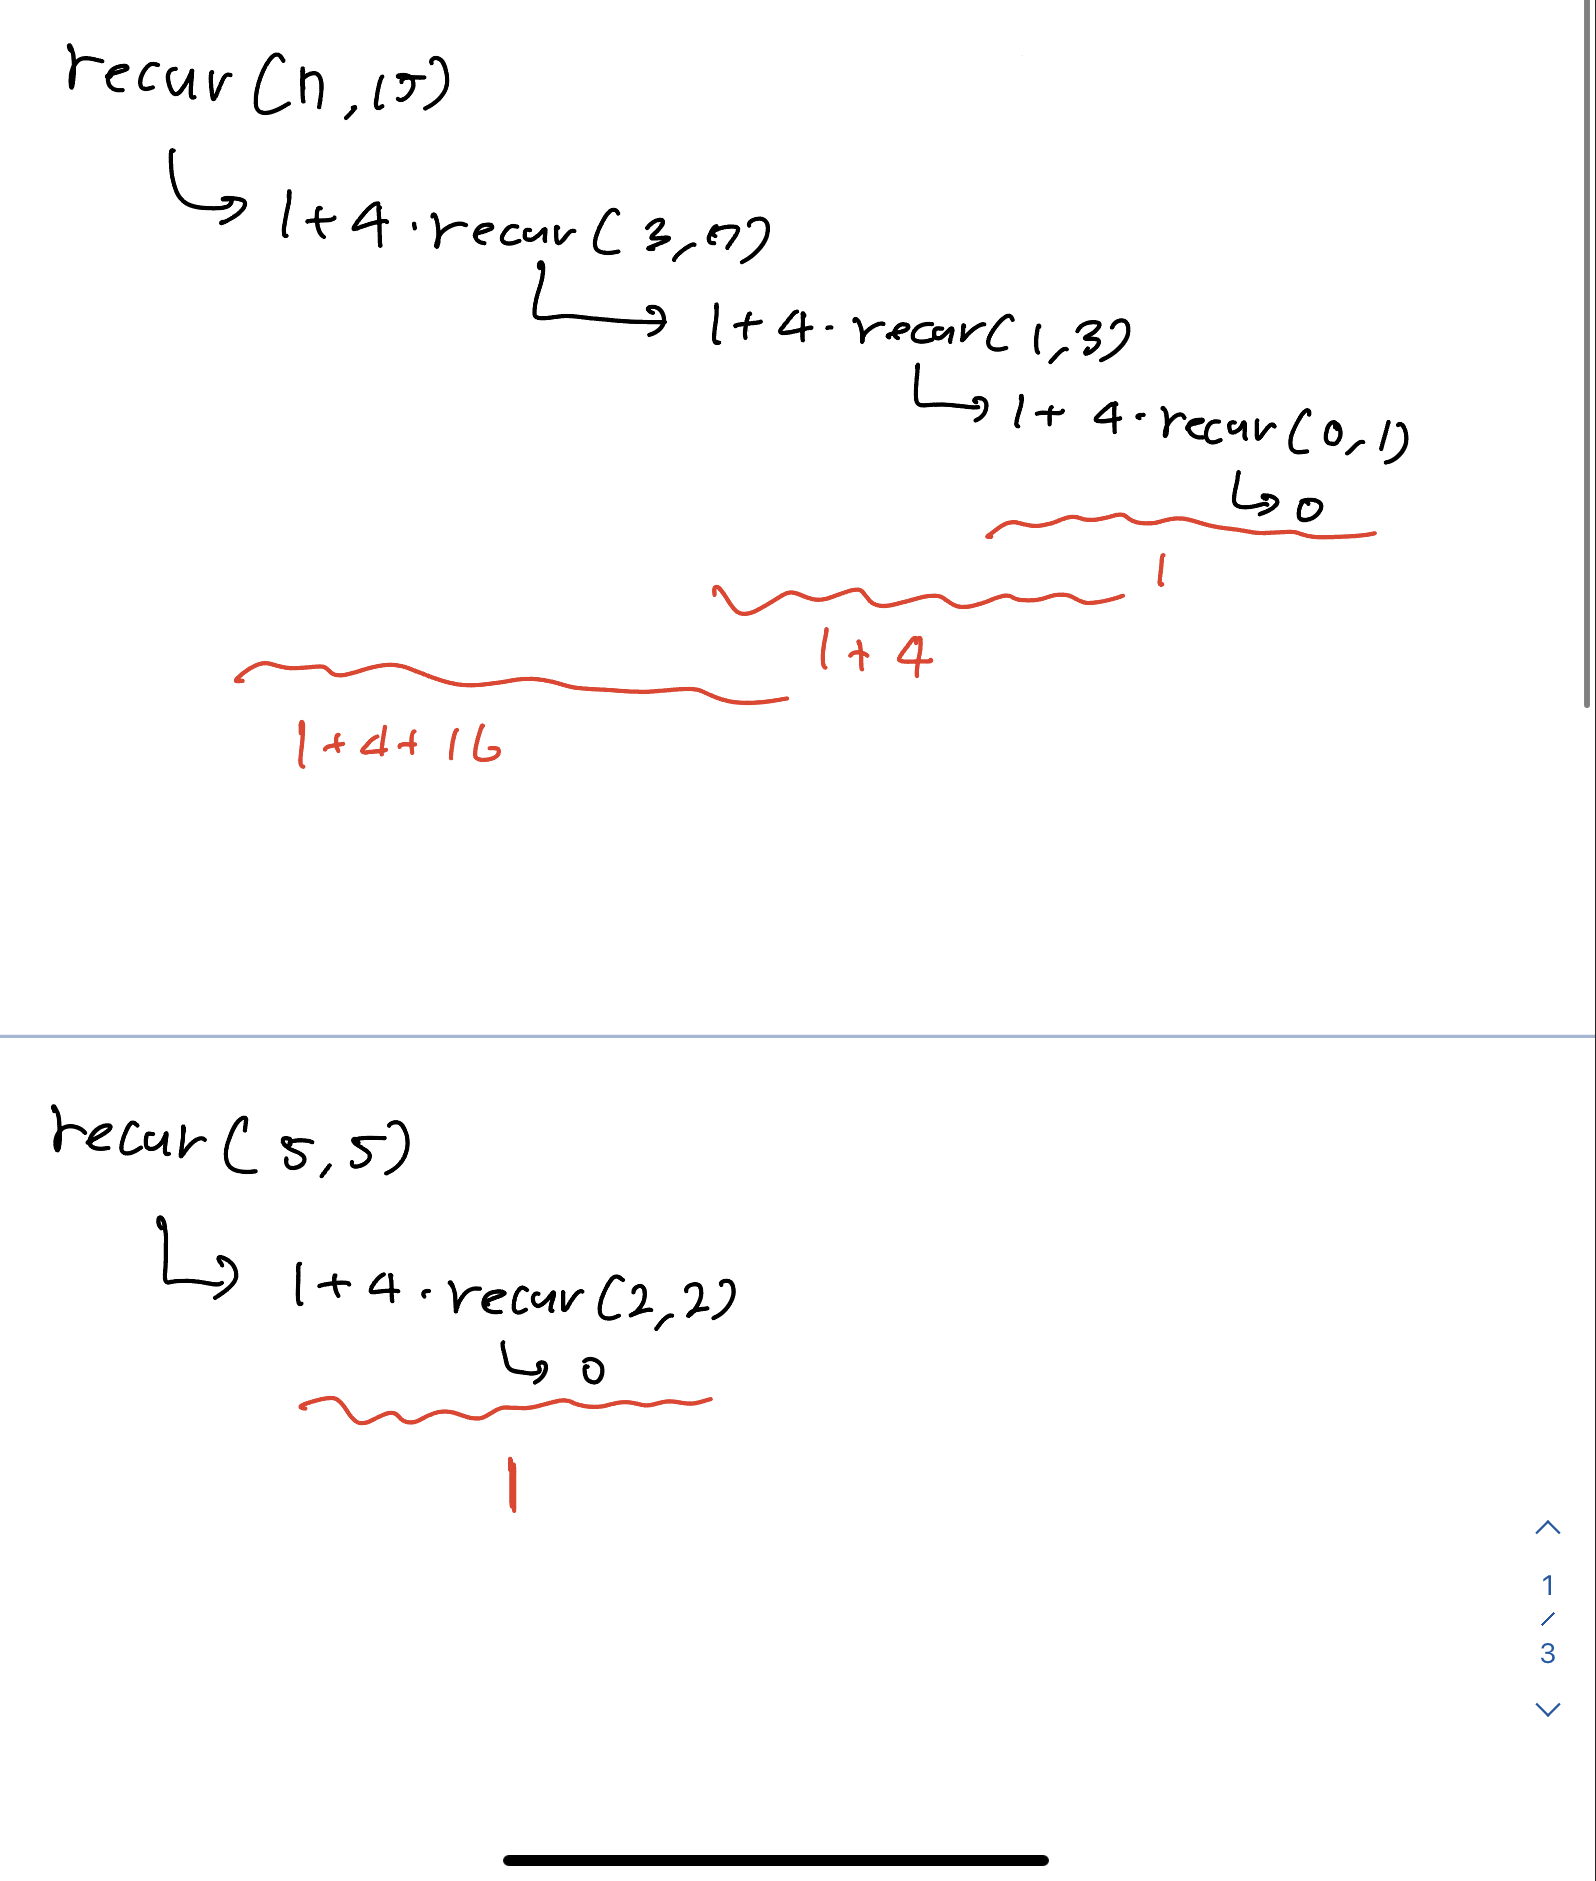 recur(n,15)
↳ 1+4·recur(3,7)
↳ 1+4·recur(1,3)
↳ 1+4·recur(0,1)
↳ 0
1
1+4
1+4+16
recur(5,5)
↳ 1+4·recur(2,2)
↳ 0
1
1
/
3